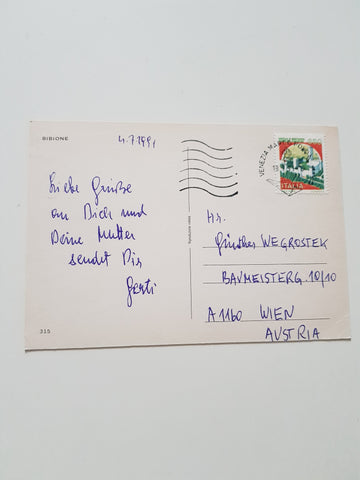 BIBIONE
4.7.1991
Liebe Grüße
an Dich und
Deine Mutter
sendet Dir
Gerti
315
VENEZIA MA
ITALIA
Hr.
Günther WEGROSTEK
BAUMEISTERG. 10/10
A1160 WIEN
AUSTRIA